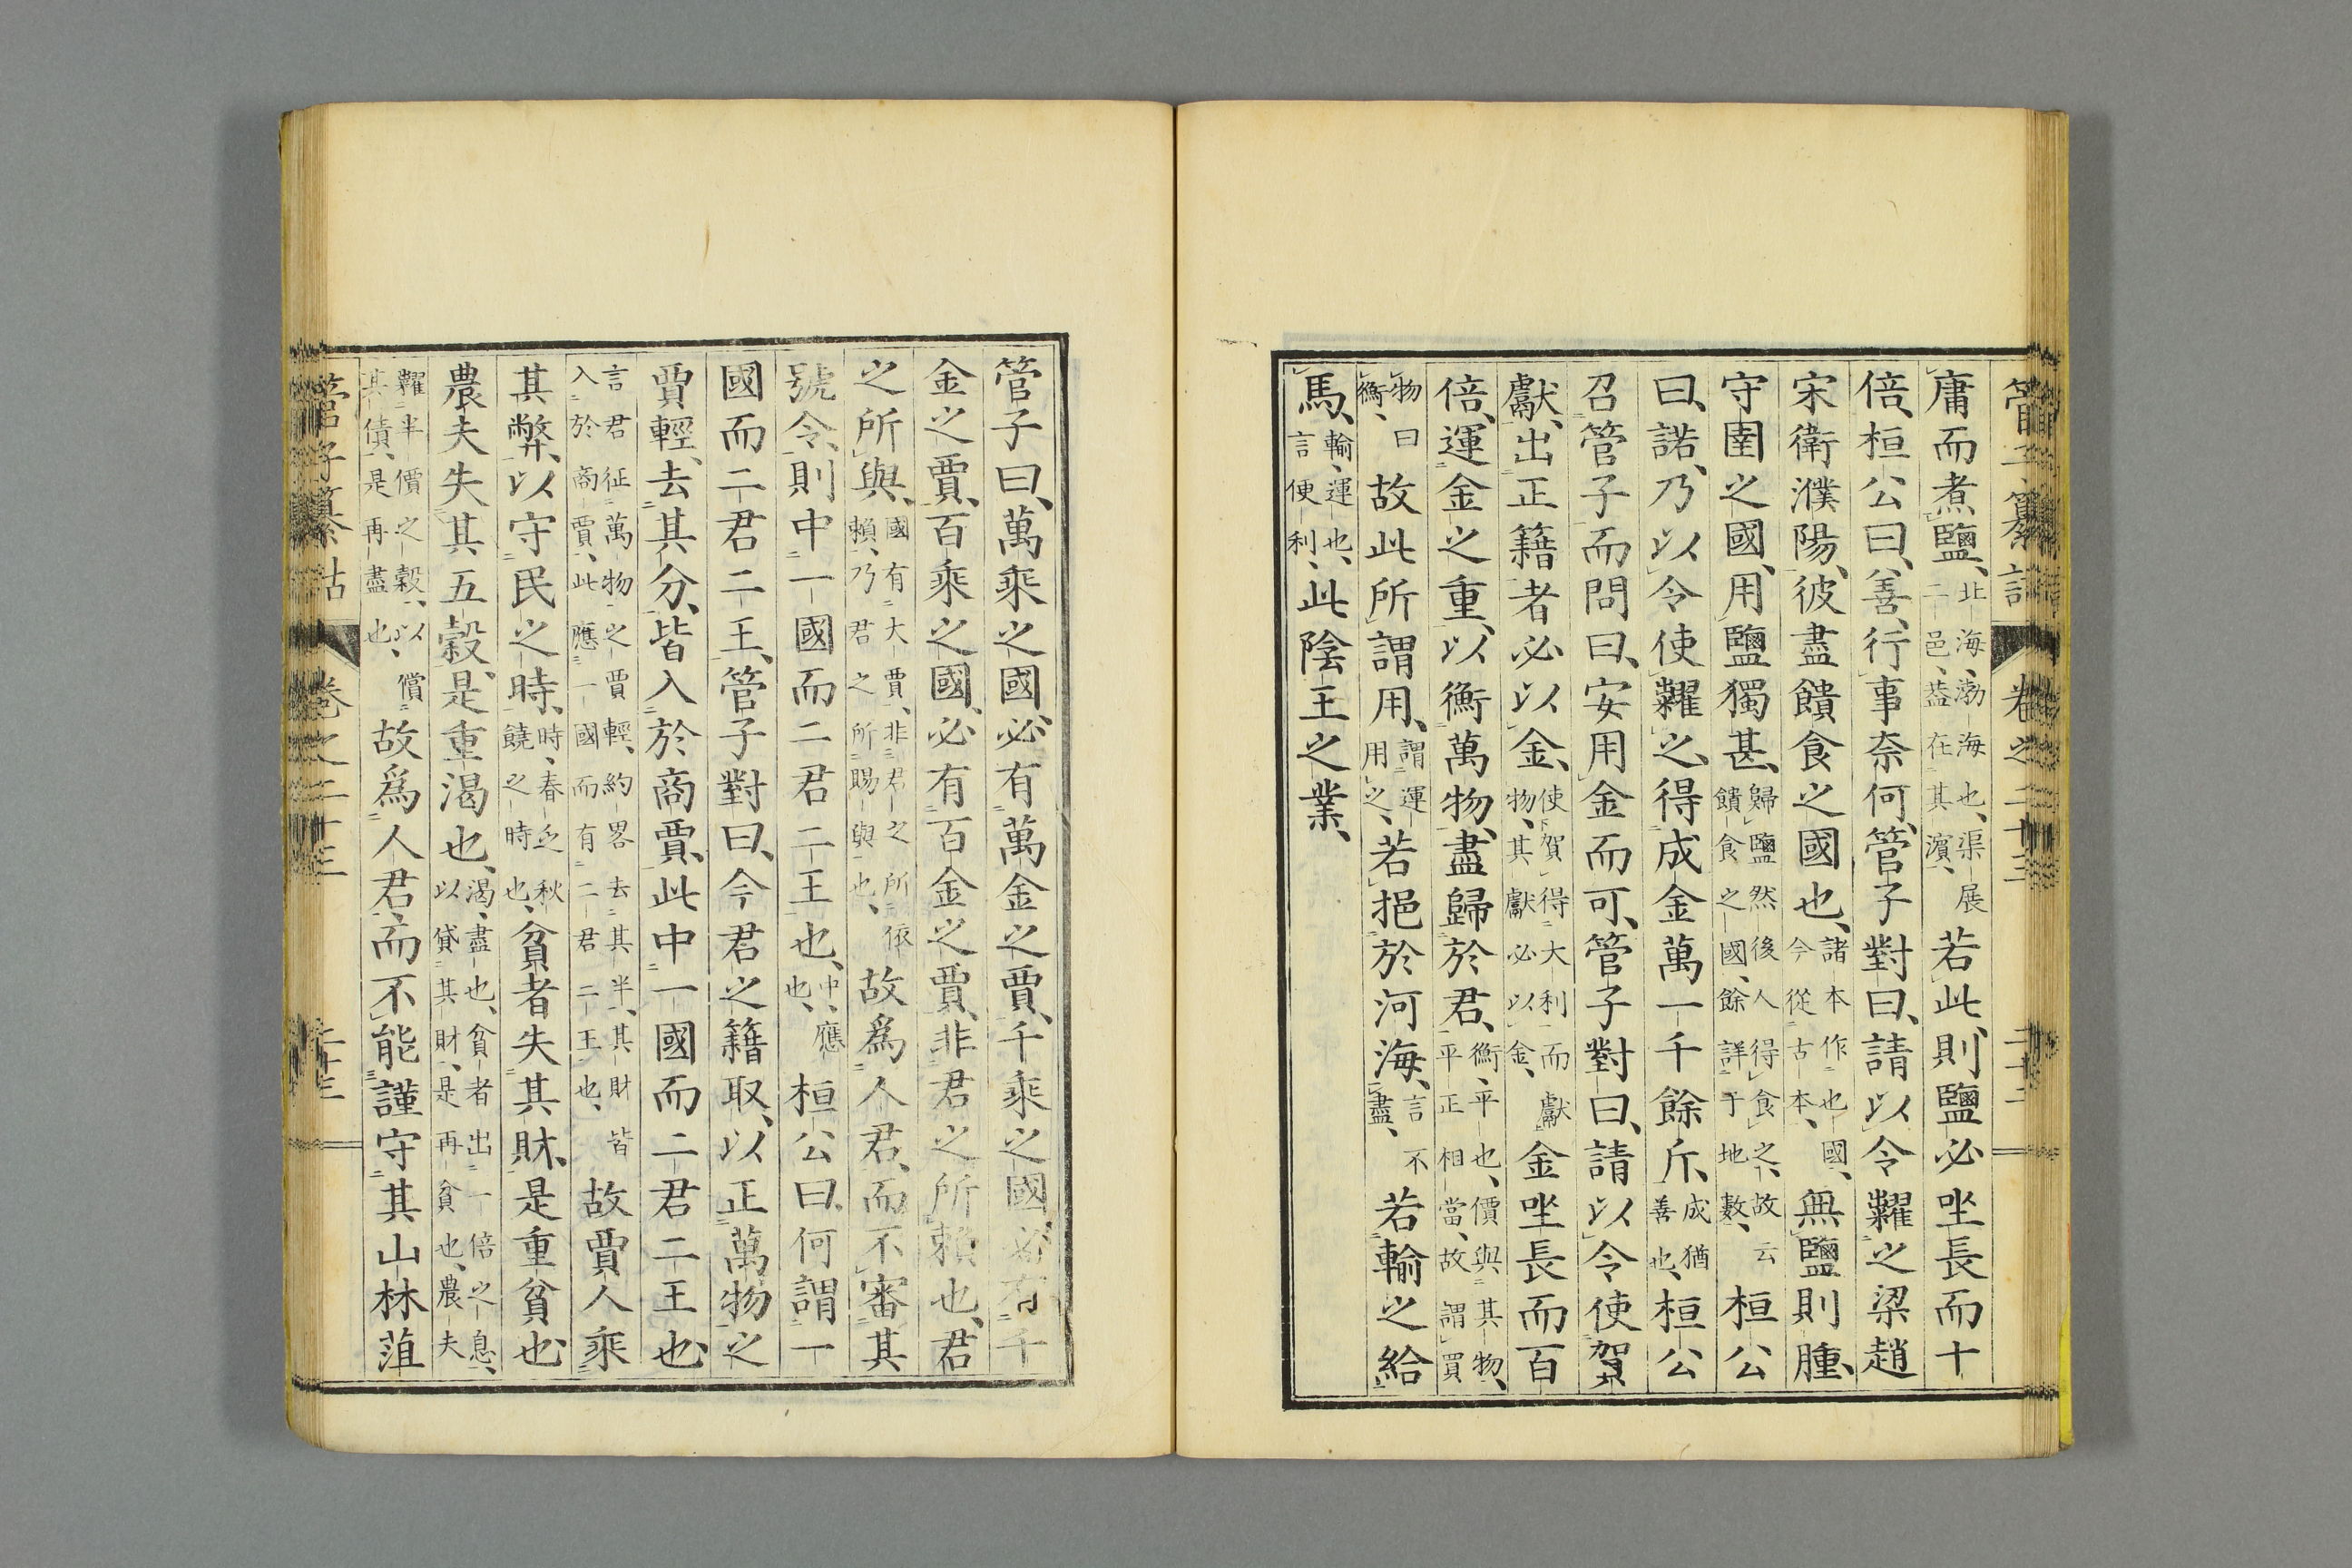 管子纂詁 卷之二十三 二十二
庸而煮鹽、北海、渤海也、渠展二邑、葢在其濱、若此、則鹽必坐長而十
倍、桓公曰、善、行事奈何、管子對曰、請以令糶之梁趙
宋衛濮陽、彼盡饋食之國也、諸本作也國、今從古本、無鹽則腫、
守圉之國、用鹽獨甚、歸鹽然後人得食之、故云饋食之國、餘詳于地數、桓公
曰、諾、乃以令使糶之、得成金萬一千餘斤、成猶善也、桓公
召管子而問曰、安用金而可、管子對曰、請以令使賀
獻、出正籍者必以金、使賀得大利而獻物、其獻必以金、金坐長而百
倍、運金之重、以衡萬物、盡歸於君、衡、平也、價與其物、平正相當、故謂買
物曰衡、故此所謂用、謂運用之、若挹於河海、言不盡、若輸之給
馬、輸、運也、言便利、此陰王之業、
管子曰、萬乘之國、必有萬金之賈、千乘之國、必有千
金之賈、百乘之國、必有百金之賈、非君之所賴也、君
之所與、國有大賈、非君之所依賴、乃君之所賜與也、故爲人君、而不審其
號令、則中一國而二君二王也、中、應也、桓公曰、何謂一
國而二君二王、管子對曰、今君之籍取、以正萬物之
賈輕、去其分、皆入於商賈、此中一國而二君二王也、
言君征萬物之賈輕、約畧去其半、其財皆入於商賈、此應一國而有二君二王也、故賈人乘
其弊、以守民之時、時、春乏秋饒之時也、貧者失其財、是重貧也、
農夫失其五穀、是重渴也、渴、盡也、貧者出一倍之息、以貸其財、是再貧也、農夫
糶半價之穀、以償其債、是再盡也、故爲人君、而不能謹守其山林菹
管子纂詁 卷之二十三 二十三